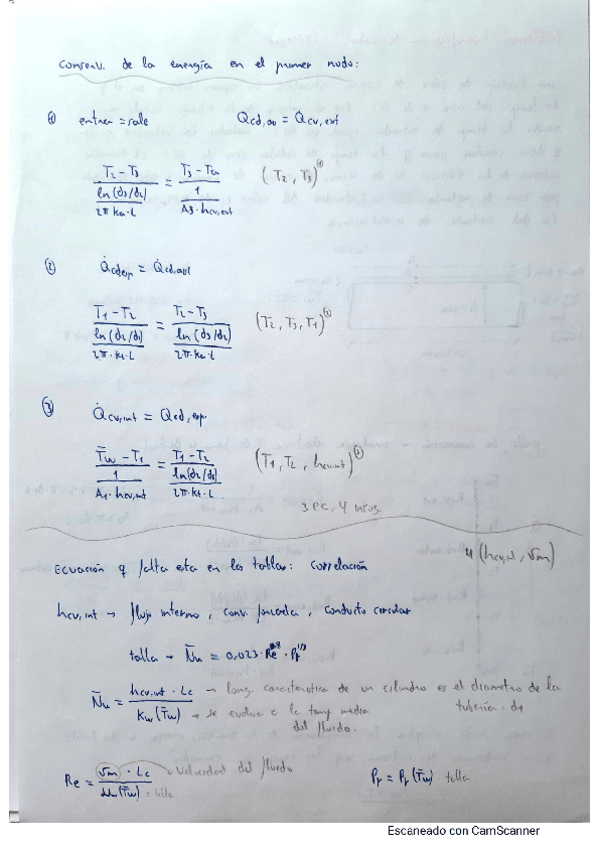 conserv. de la energía en el primer nodo:
① entra = sale Q̇cd,au = Q̇cv,ext
(T2 - T3) / (ln(d3/d2) / 2π·ka·L) = (T3 - Ta) / (1 / A3·hcv,ext) (T2, T3)
② Q̇cd,esp = Q̇cd,ais
(T1 - T2) / (ln(d2/d1) / 2π·kt·L) = (T2 - T3) / (ln(d3/d2) / 2π·ka·L) (T2, T3, T1)
③ Q̇cv,int = Q̇cd,esp
(T̄w - T1) / (1 / A1·hcv,int) = (T1 - T2) / (ln(d2/d1) / 2π·kt·L) (T1, T2, hcv,int)
3 ec, 4 incog.
4 (hcv,int, vm)
Ecuación q falta esta en las tablas: correlación
hcv,int → flujo interno, conv. forzada, conducto circular
tabla → N̄u = 0,023·Re^0,8·Pr^1/3
N̄u = hcv,int · Lc / kw(T̄w) → long. característica de un cilindro es el diametro de la tubería. d1
→ se evalua a la temp media del fluido.
Re = vm · Lc / νw(T̄w) → velocidad del fluido
= tabla
Pr = Pr(T̄w) tabla
Escaneado con CamScanner